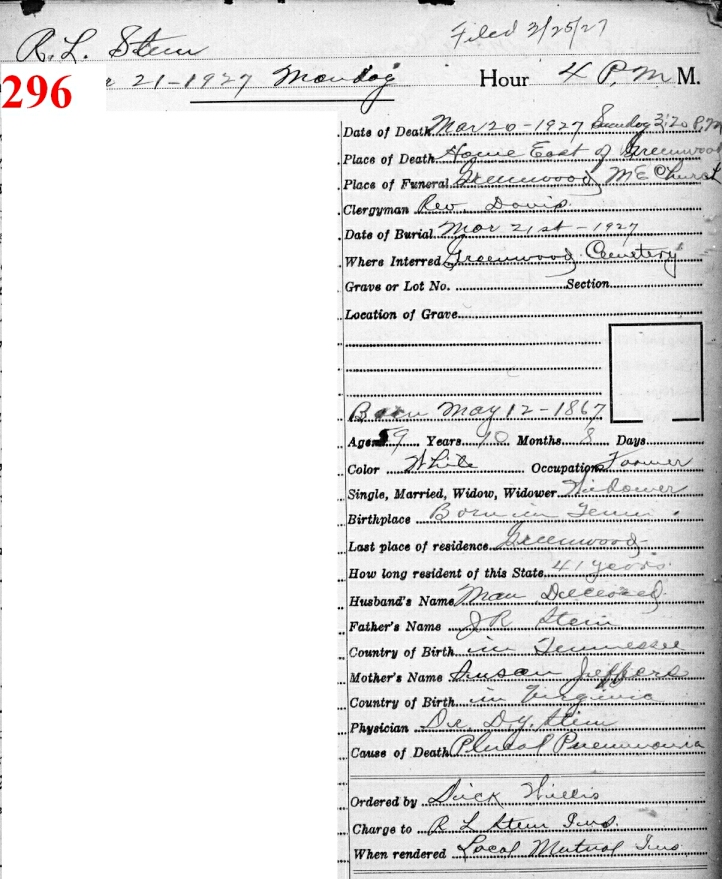 R. L. Stein
Filed 3/25/27
296
21-1927 Monday Hour 4 P.M M.
Date of Death Mar 20-1927 Sunday 3:20 P.M
Place of Death Home East of Greenwood
Place of Funeral Greenwood M E Church
Clergyman Rev. Davis
Date of Burial Mar 21st-1927
Where Interred Greenwood Cemetery
Grave or Lot No. Section
Location of Grave
Born May 12-1867
Age 59 Years 10 Months 8 Days
Color White Occupation Farmer
Single, Married, Widow, Widower Widower
Birthplace Born in Tenn.
Last place of residence Greenwood
How long resident of this State 41 years
Husband's Name Man Deceased
Father's Name J R Stein
Country of Birth in Tennessee
Mother's Name Susan Jeffers
Country of Birth in Virginia
Physician Dr. D.Y. Stein
Cause of Death Plural Pneumonia
Ordered by Dick Willis
Charge to R L Stein Ins.
When rendered Local Mutual Ins.